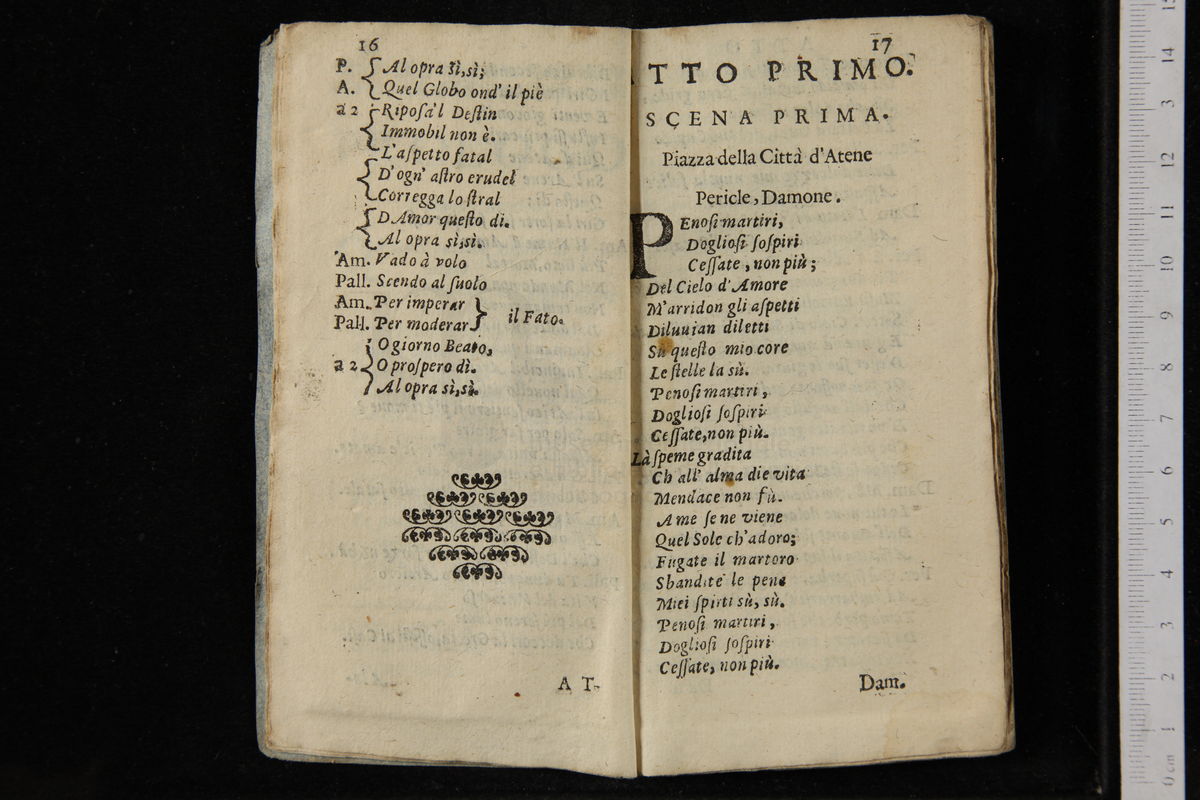 16
P. Al opra sì, sì;
A. Quel Globo ond' il piè
a 2 Riposa'l Destin
Immobil non è.
L'aspetto fatal
D'ogn' astro erudel
Corregga lo stral
D Amor questo di.
Al opra sì, sì.
Am. Vado à volo
Pall. Scendo al suolo
Am. Per imperar
Pall. Per moderar } il Fato.
O giorno Beato,
a 2 O prospero dì.
Al opra sì, sì.
A T-
17
TTO PRIMO.
SCENA PRIMA.
Piazza della Città d'Atene
Pericle, Damone.
PEnosi martiri,
Dogliosi sospiri
Cessate, non più;
Del Cielo d'Amore
M'arridon gli aspetti
Diluuian diletti
Sù questo mio core
Le stelle la sù.
Penosi martiri,
Dogliosi sospiri
Cessate, non più.
Là speme gradita
Ch all' alma die vita
Mendace non fù.
A me se ne viene
Quel Sole ch'adoro;
Fugate il martoro
Sbandite le pene
Miei spirti sù, sù.
Penosi martiri,
Dogliosi sospiri
Cessate, non più.
Dam.
0 cm 1 2 3 4 5 6 7 8 9 10 11 12 13 14 15